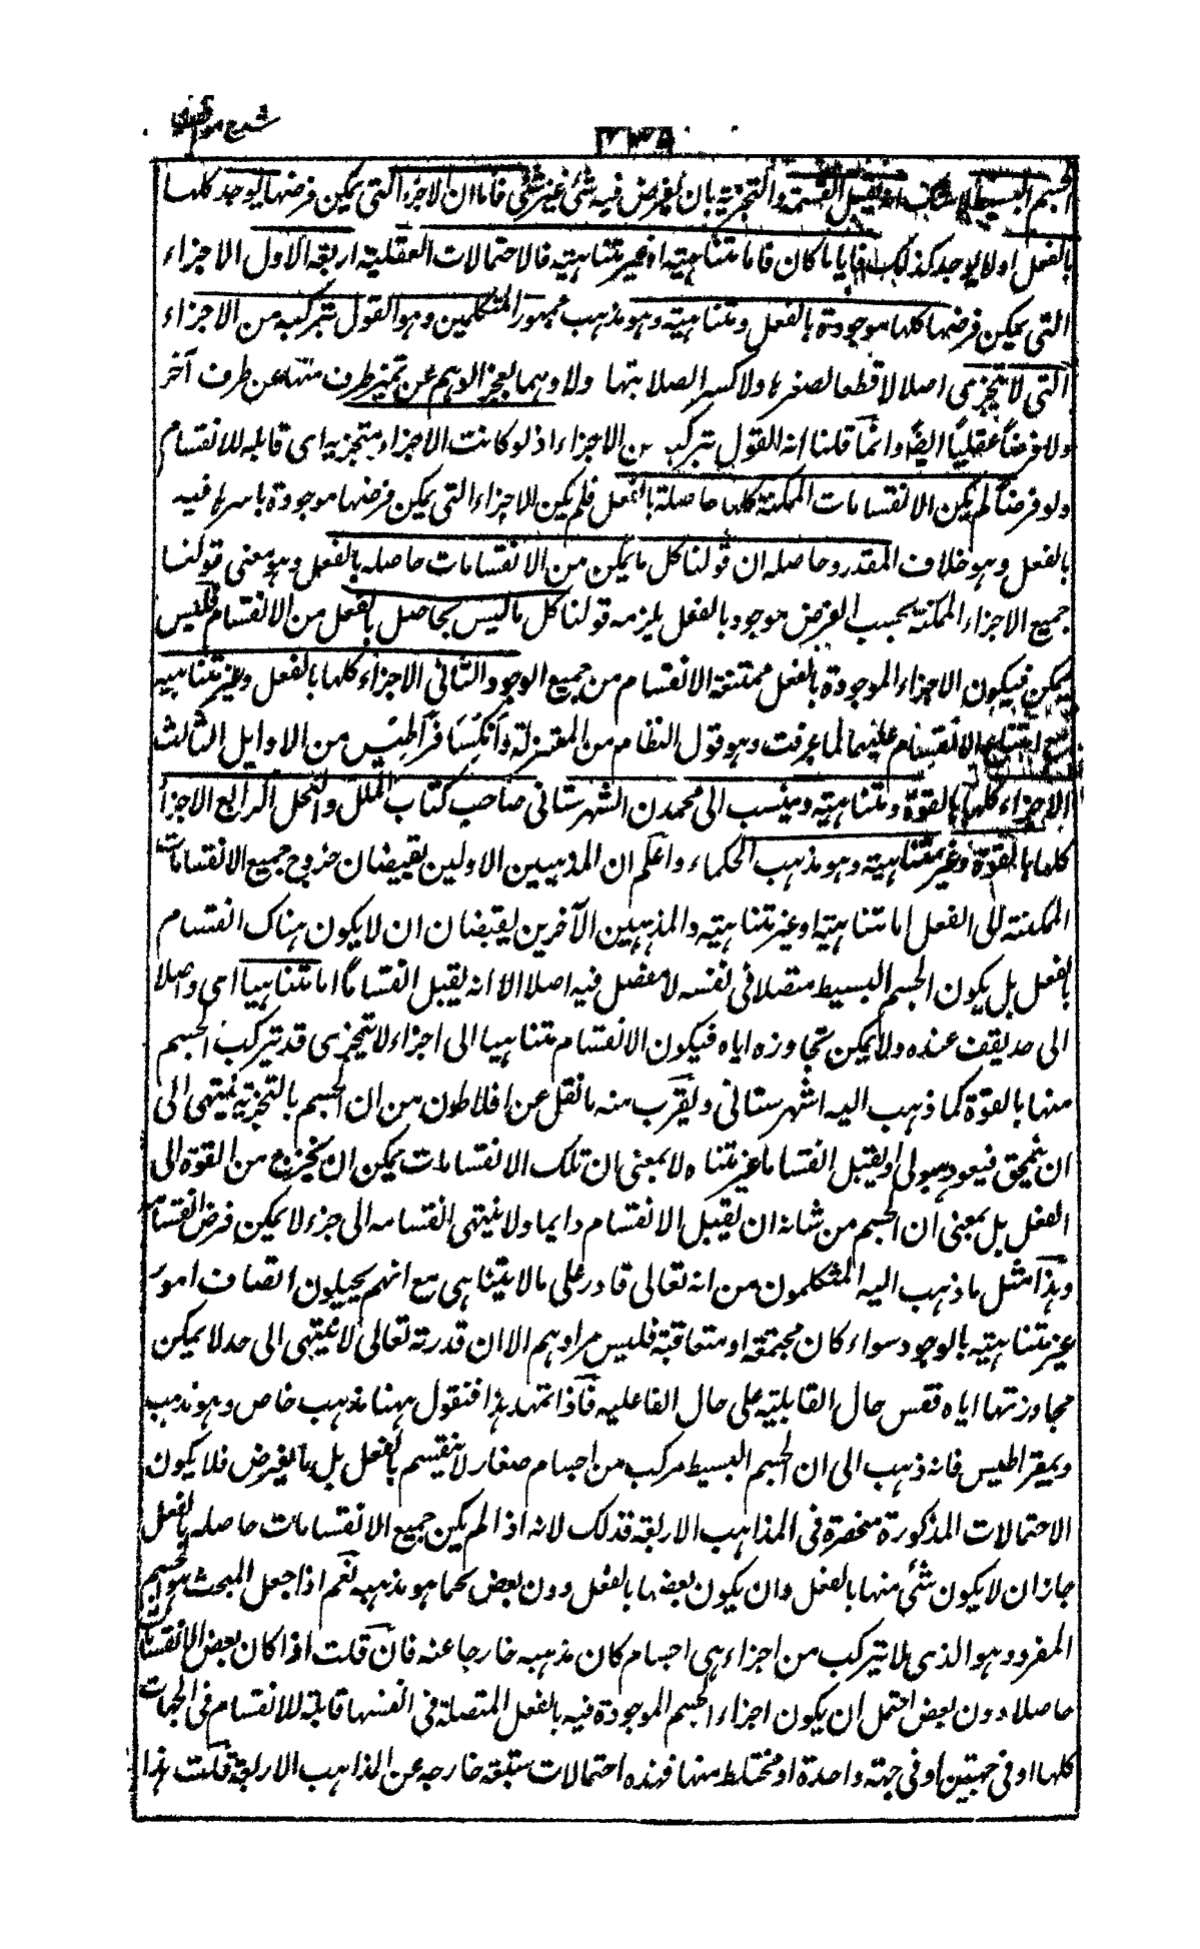 شرح مواقف
٤٣٩
الجسم البسيط لا شك انه يقبل القسمة والتجزية بان يفرض فيه شئ غير شئ فاما ان الاجزاء التى يمكن فرضها يوجد كلها
بالفعل او لا يوجد كذلك فاياما كان فاما متناهية او غير متناهية فالاحتمالات العقلية اربعة الاول الاجزاء
التى يمكن فرضها كلها موجودة بالفعل ومتناهية وهو مذهب جمهور المتكلمين وهو القول بتركبه من الاجزاء
التى لا تتجزى اصلا لا قطعا لصغرها ولا كسرا لصلابتها ولا وهما لعجز الوهم عن تميز طرف منها عن طرف آخر
ولا فرضاً عقلياً ايضاً وانما قلنا انه القول بتركبه من الاجزاء اذ لو كانت الاجزاء متجزية اى قابله للانقسام
ولو فرضاً لم يكن الانقسامات الممكنة كلها حاصلة بالفعل فلم يكن الاجزاء التى يمكن فرضها موجودة باسرها فيه
بالفعل وهو خلاف المقدر وحاصله ان قولنا كل ما يمكن من الانقسامات حاصله بالفعل وهو معنى قولنا
جميع الاجزاء الممكنة بحسب الفرض موجود بالفعل يلزمه قولنا كل ما ليس بحاصل بالفعل من الانقسام فليس
يمكن فيكون الاجزاء الموجودة بالفعل ممتنعة الانقسام من جميع الوجوه الثانى الاجزاء كلها بالفعل وغير متناهية
مع امتناع الانقسام عليهما لما عرفت وهو قول النظام من المعتزلة وانكسافراطيس من الاوايل الثالث
الاجزاء كلها بالقوة ومتناهية وينسب الى محمدن الشهرستانى صاحب كتاب الملل والنحل الرابع الاجزا
كلها بالقوة وغير متناهية وهو مذهب الحكماء واعلم ان المذهبين الاولين يقتضيان خروج جميع الانقسامات
الممكنة الى الفعل اما متناهية او غير متناهية والمذهبين الآخرين يقتضيان ان لا يكون هناك انقسام
بالفعل بل يكون الجسم البسيط متصلا فى نفسه لا مفصل فيه اصلا الا انه يقبل انقساماً اما متناهيا اى واصلا
الى حد يقف عنده ولا يمكن تجاوزه اياه فيكون الانقسام متناهيا الى اجزاء لا تتجزى قد تركب الجسم
منها بالقوة كما ذهب اليه الشهرستانى ويقرب منه ما نقل عن افلاطون من ان الجسم بالتجزية ينتهى الى
ان ينمحق فيعود هيولى او يقبل انقساما غير متناه لا بمعنى ان تلك الانقسامات يمكن ان يخرج من القوة الى
الفعل بل بمعنى ان الجسم من شانه ان يقبل الانقسام دايما ولا ينتهى انقسامه الى جزء لا يمكن فرض انقسامه
وهذا مثل ما ذهب اليه المتكلمون من انه تعالى قادر على ما لا يتناهى مع انهم يحيلون اتصاف امور
غير متناهية بالوجود سواء كان مجتمعة او متعاقبة فليس مرادهم الا ان قدرته تعالى لا ينتهى الى حد لا يمكن
مجاوزتها اياه فقس حال القابلية على حال الفاعليه فاذا تمهد هذا فنقول ههنا مذهب خاص وهو مذهب
ديمقراطيس فانه ذهب الى ان الجسم البسيط مركب من اجسام صغار لا ينقسم بالفعل بل بالفرض فلا يكون
الاحتمالات المذكورة منحصرة فى المذاهب الاربعة قدلك لانه اذا لم يكن جميع الانقسامات حاصله بالفعل
جاز ان لا يكون شئ منها بالفعل وان يكون بعضها بالفعل دون بعض كما هو مذهبه نعم اذا جعل المبحث هو الجسم
المفرد وهو الذى لا تتركب من اجزاء هى اجسام كان مذهبه خارجا عنه فان قلت اذا كان بعض الانقسامات
حاصلا دون بعض احتمل ان يكون اجزاء الجسم الموجودة فيه بالفعل المتصلة فى انفسها قابلة للانقسام فى الجهات
كلها او فى جهتين او فى جهته واحدة او مختلط منها فهذه احتمالات ستة خارجه عن المذاهب الاربعة قلت هذا